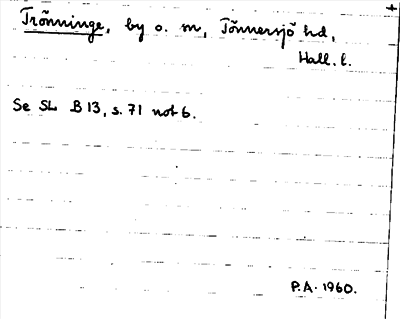 Trönninge, by o. sn, Tönnersjö hd,
Hall. l.
Se SL B 13, s. 71 not 6.
P.A. 1960.